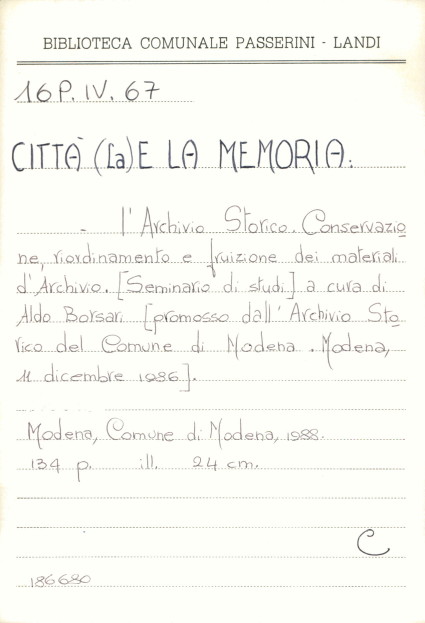 BIBLIOTECA COMUNALE PASSERINI - LANDI
16P. IV. 67
CITTÀ (La) E LA MEMORIA.
- l'Archivio Storico. Conservazio
ne, riordinamento e fruizione dei materiali
d'Archivio. [Seminario di studi] a cura di
Aldo Borsari [promosso dall'Archivio Sto
rico del Comune di Modena. Modena,
11 dicembre 1986].
Modena, Comune di Modena, 1988.
134 p. ill. 24 cm.
C
186680